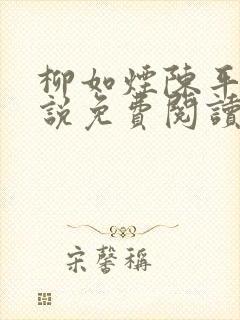 柳如煙陳平
說免費閱讀
宋馨稱